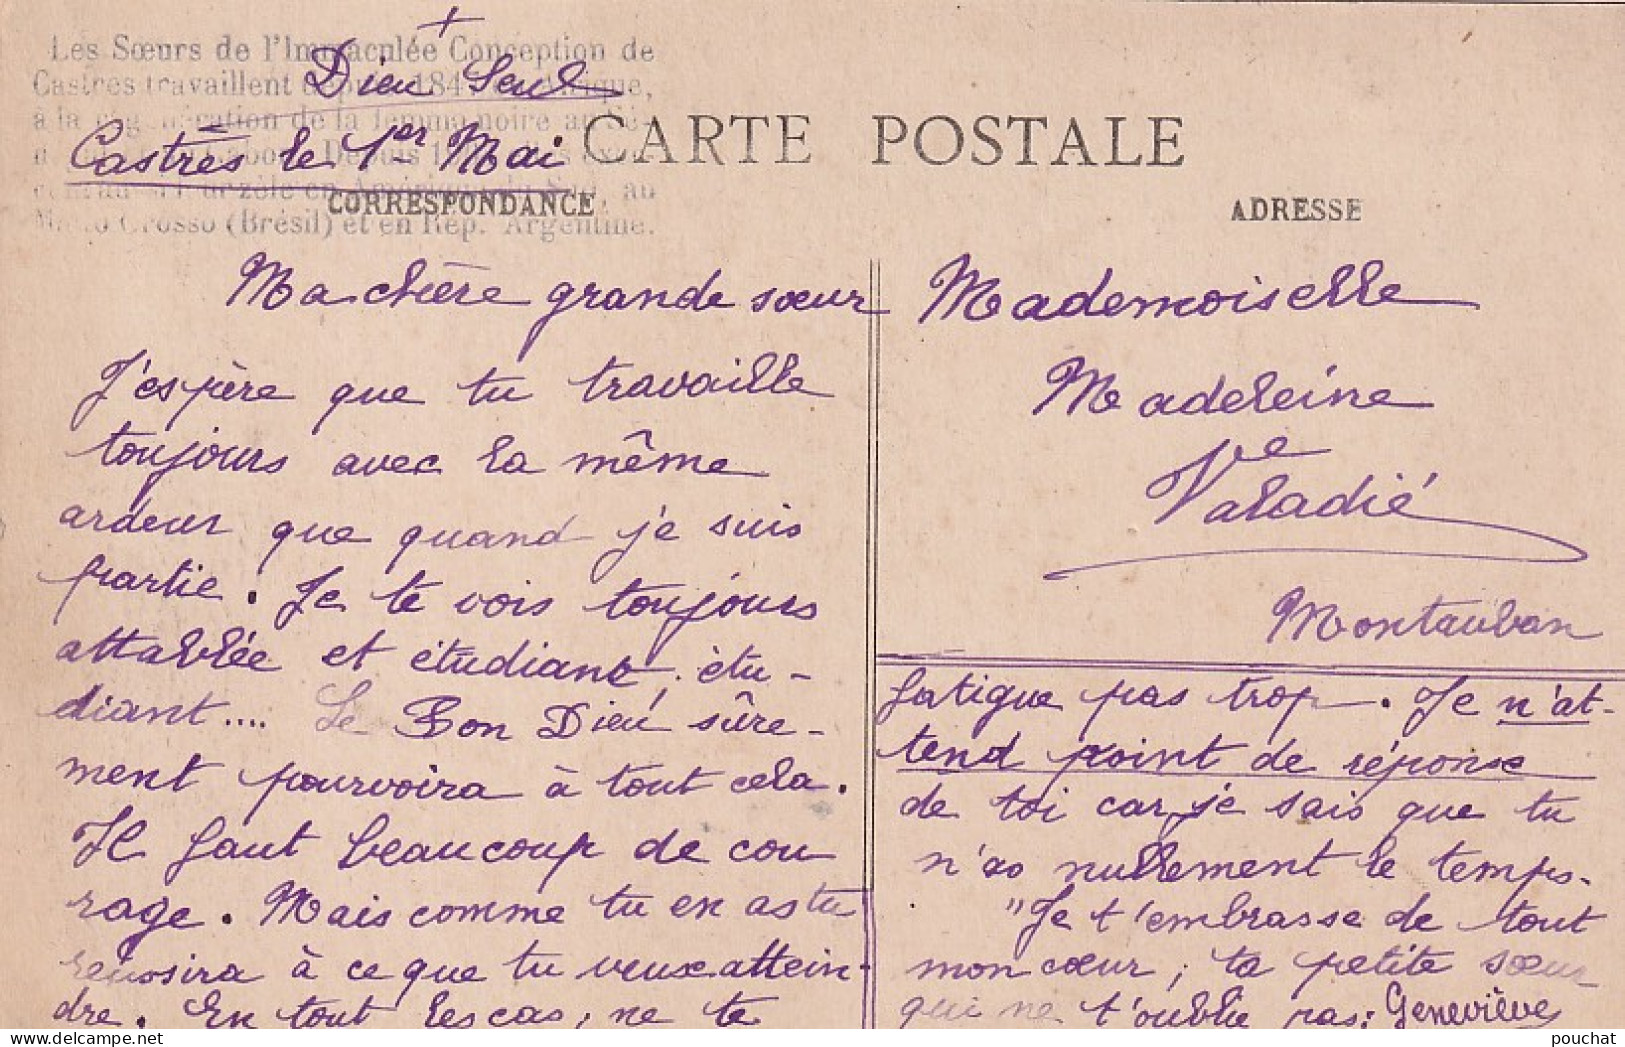 +
Les Sœurs de l'Immaculée Conception de
Castres travaillent depuis 184 Afrique,
à la régénération de la femme noire au Sé-
Depuis
en Amérique du Sud, au
Matto Grosso (Brésil) et en Rép. Argentine.
Dieu Seul
Castres le 1er Mai
CARTE POSTALE
CORRESPONDANCE
ADRESSE
Ma chère grande sœur
J'espère que tu travaille
toujours avec la même
ardeur que quand je suis
partie. Je te vois toujours
attablée et étudiant, étu-
diant.... Le Bon Dieu sûre-
ment pourvoira à tout cela.
Il faut beaucoup de cou
rage. Mais comme tu en as tu
reussira à ce que tu veux attein-
dre. En tout les cas, ne te
Mademoiselle
Madeleine
Ve
Valadié
Montauban
fatigue pas trop. Je n'at-
tend point de réponse
de toi car je sais que tu
n'as nullement le temps.
"Je t'embrasse de tout
mon cœur, ta petite sœur
qui ne t'oublie pas: Geneviève
pouchat